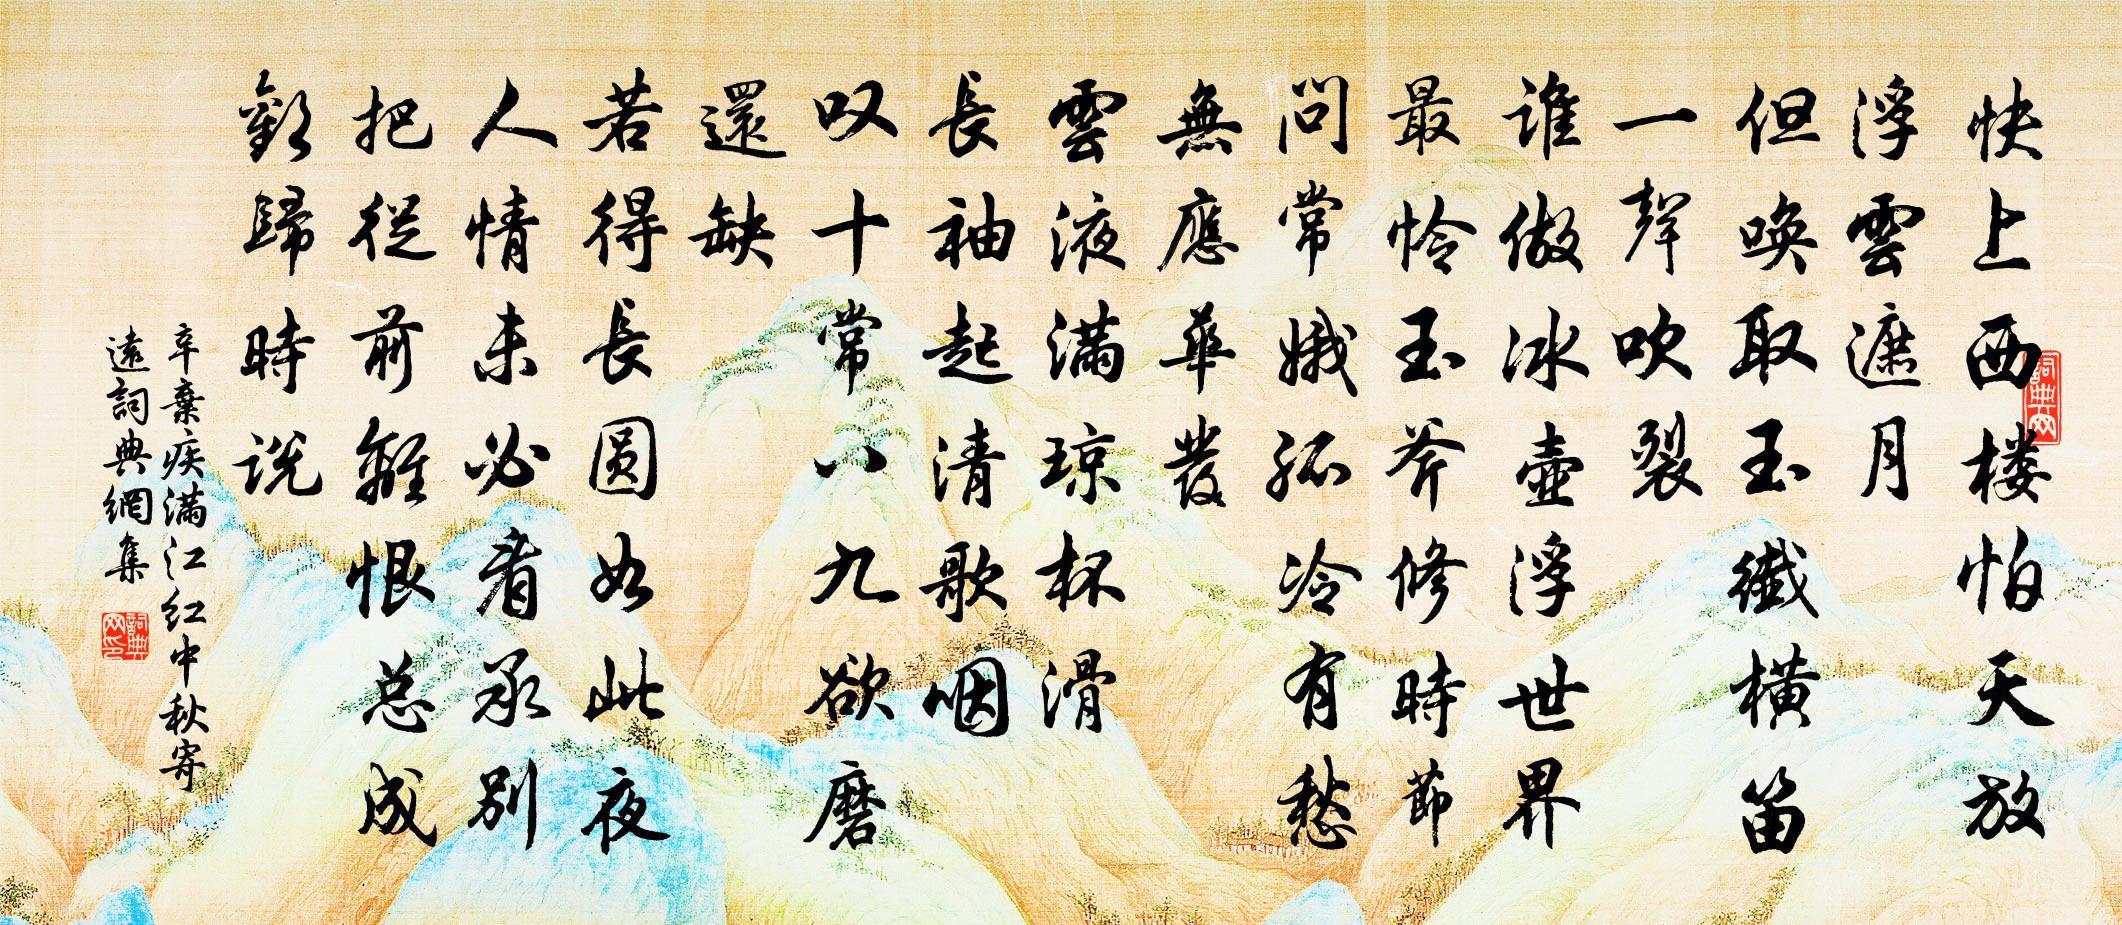 快上西楼怕天放
浮雲遮月
但唤取玉纖横笛
一聲吹裂
谁做冰壶浮世界
最怜玉斧修時節
问常娥孤冷有愁
無應華發
雲液满琼杯滑
長袖起清歌咽
叹十常八九欲磨
還缺
若得長圆如此夜
人情未必看承别
把從前離恨总成
歡歸時说
辛棄疾满江红中秋寄
遠詞典網集
詞典网
詞典网印